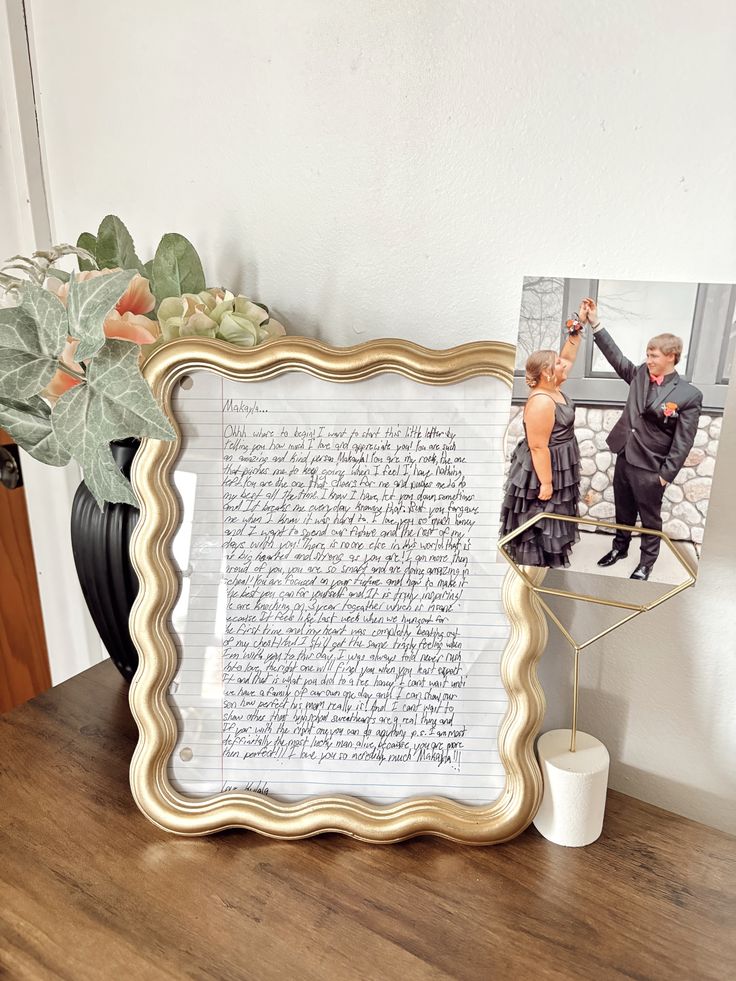 Makayla...
Ohhh where to begin! I want to start this little letter by
telling you how much I love and appreciate you! You are such
an amazing and kind person Makayla! You are my rock, the one
that pushes me to keep going when I feel I have nothing
left. You are the one that cheers for me and pushes me to do
my best all the time. I know I have let you down sometimes
and It breaks me everyday knowing that. But you forgave
me when I know it was hard to. I love you so much honey
and I want to spend our future and the rest of my
days with you! There is no one else in this world that is
as big hearted and strong as you are! I am more then
proud of you, you are so smart and are doing amazing in
school! You are focused on your future and how to make it
the best you can for yourself and It is truly inspiring!
We are knocking on 3 year together which is insane
because It feels like last week when we hungout for
the first time and my heart was completely beating out
of my chest! And I still get the same trusty feeling when
I'm with you to this day. I was always told never rush
into love, the right one will find you when you least expect
It and that is what you did to me honey. I cant wait until
we have a family of our own one day and I can show our
son how perfect his mom really is! And I cant wait to
show other that highschool sweethearts are a real thing and
If your with the right one you can do anything. p.s. I am most
deffinitally the most lucky man alive, because you are more
then perfect!!! I love you so incredibly much Makayla!!!
Love